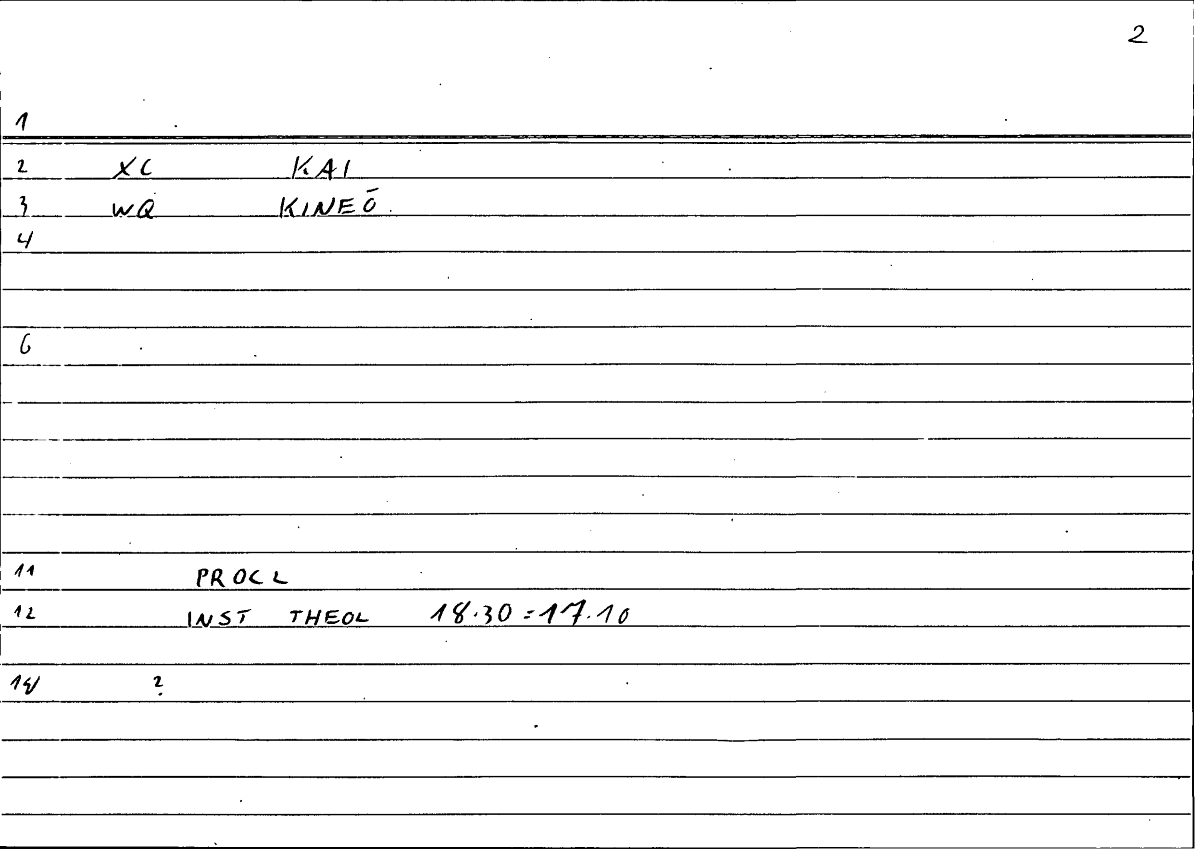 2
1
2 XC KAI
3 WQ KINEŌ
4
6
11 PROCL
12 INST THEOL 18.30=17.10
14 ?